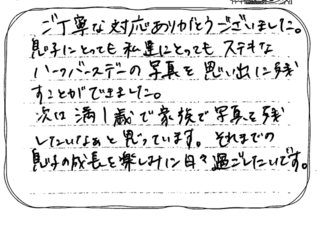 ご丁寧な対応ありがとうございました。
息子にとっても私達にとってもステキな
ハーフバースデーの写真を思い出に残
すことができました。
次は満1歳で家族で写真を残
したいなぁと思っています。それまでの
息子の成長を楽しみに日々過ごしたいです。